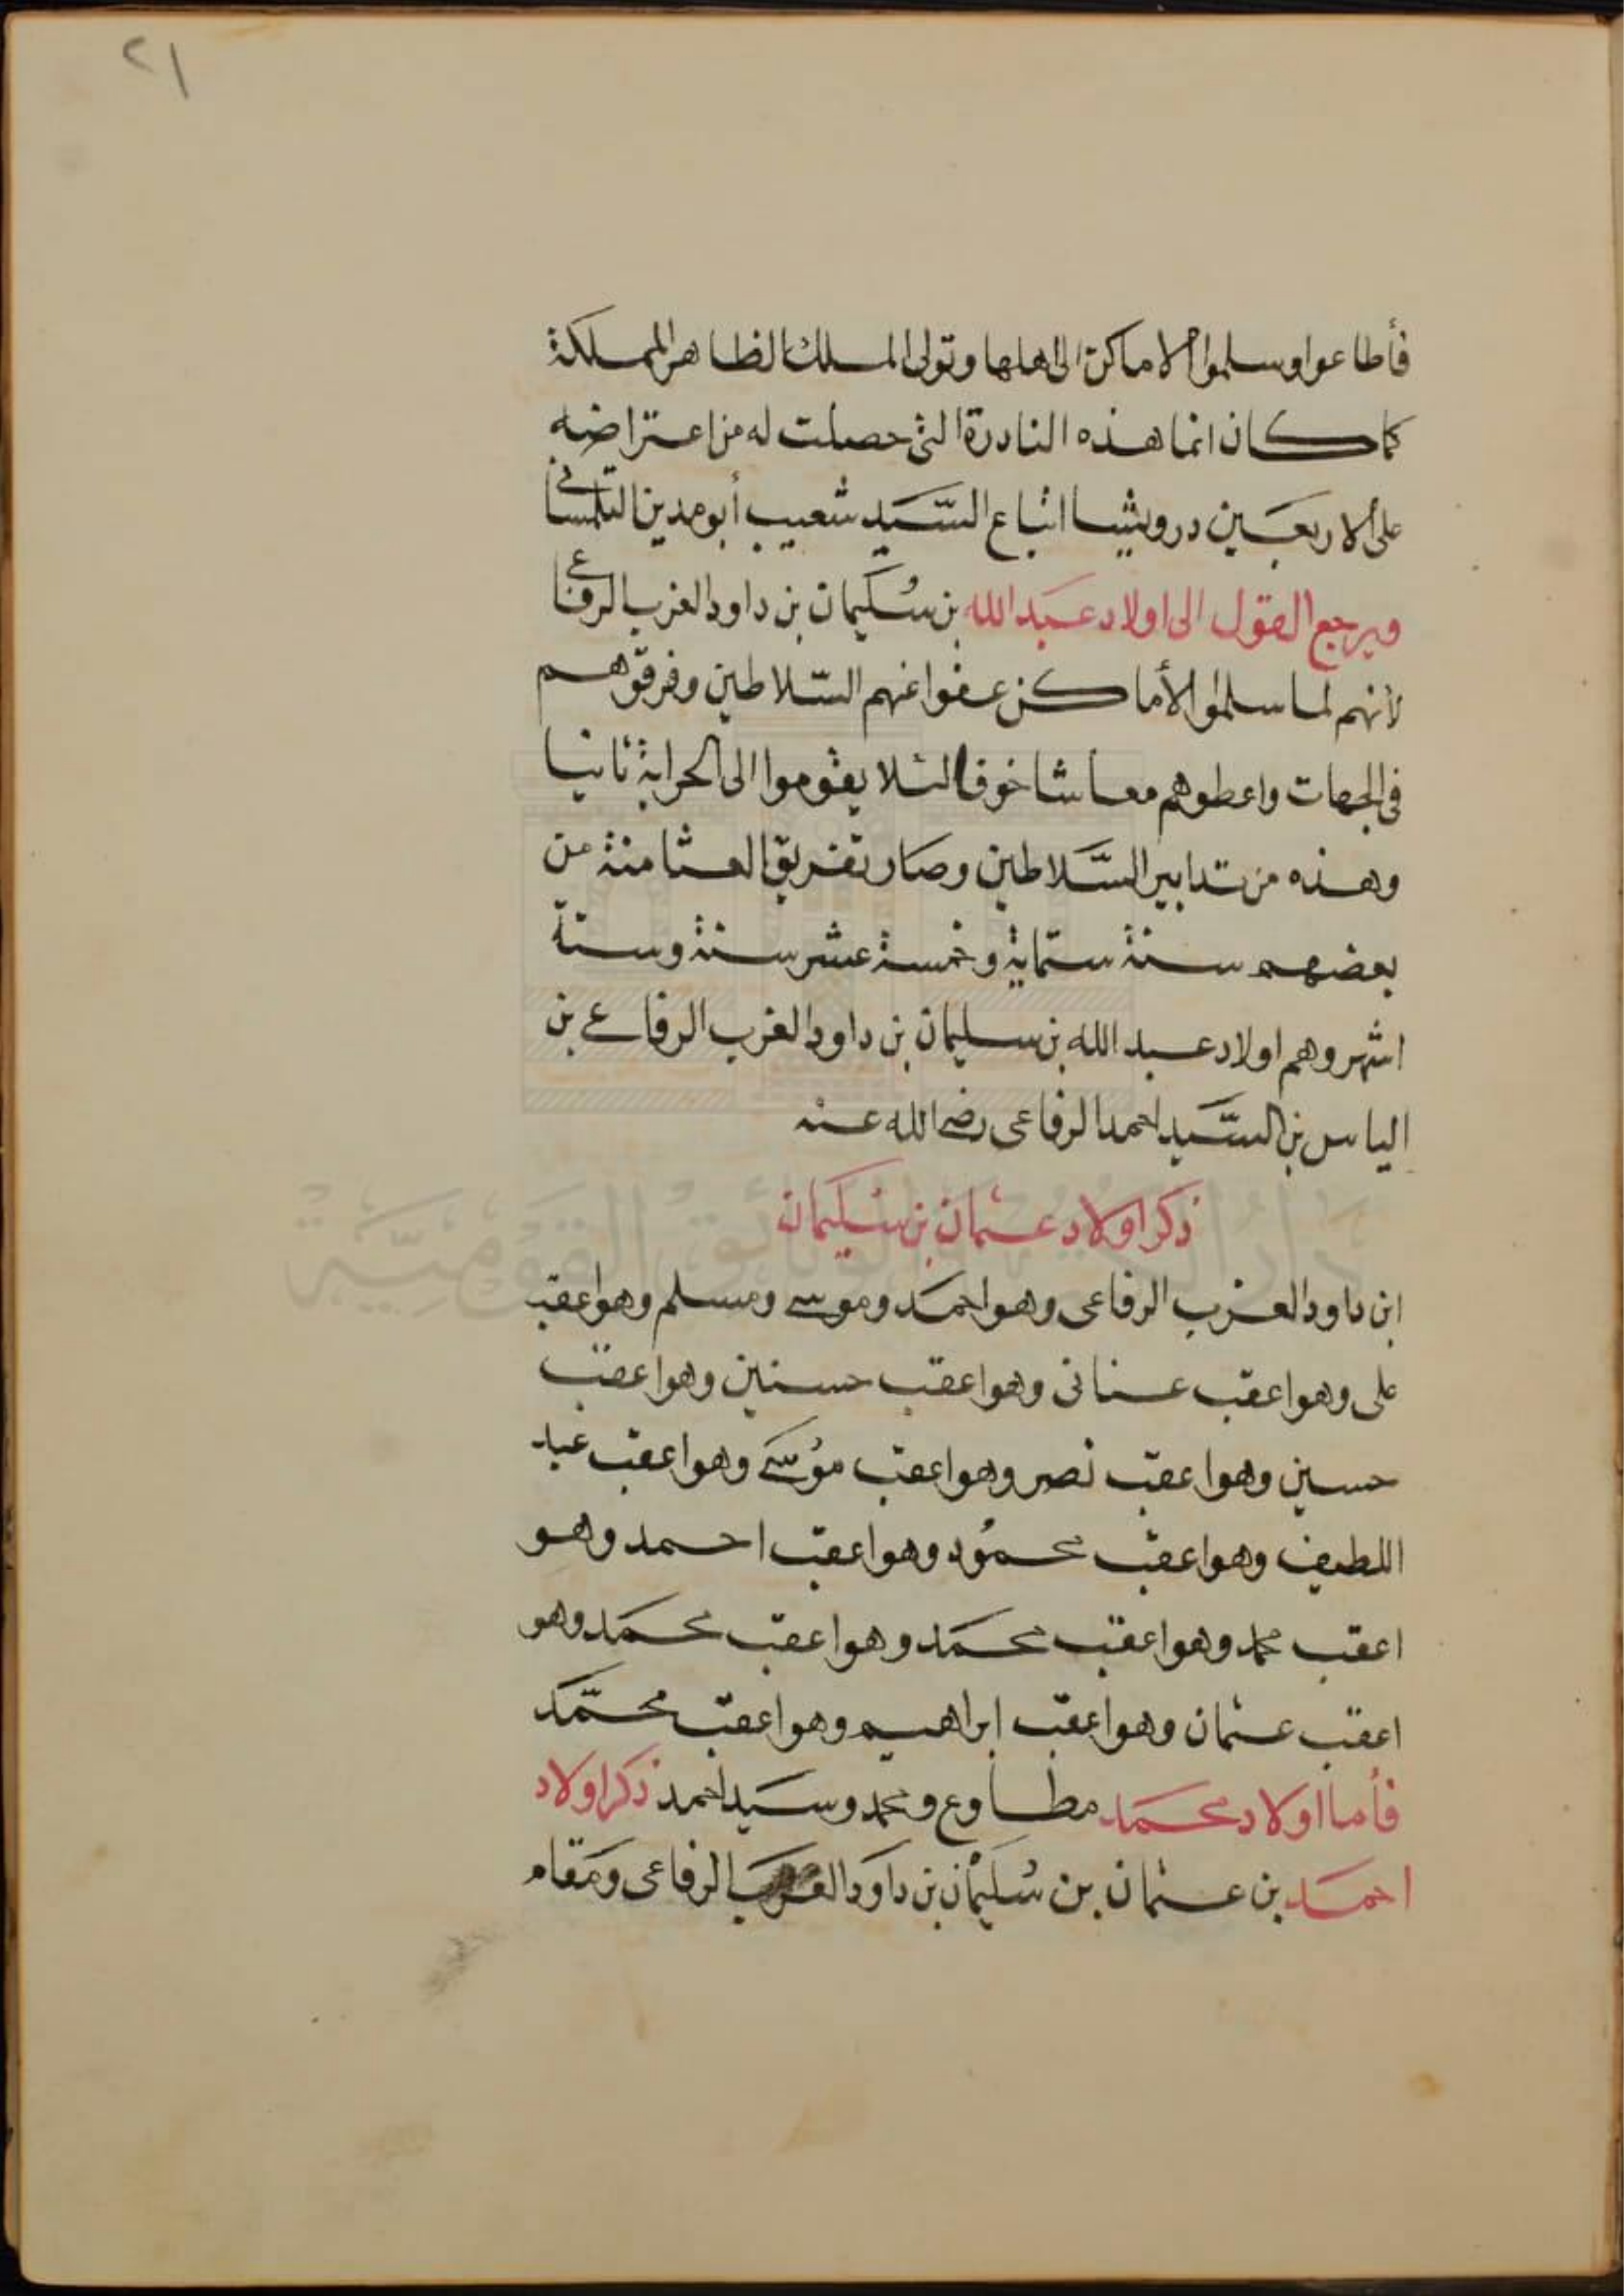 ٢١
فأطاعوا وسلموا الاماكن الى اهلها وتولى الملك الظاهر المملكة
كما كان انما هذه النادرة التى حصلت له من اعتراضه
على الاربعين درويشا اتباع السَّيد شعيب أبو مدين التلمسانى
ويرجع القول الى اولاد عبد الله بن سُليمان بن داود العزب الرفاعى
لانهم لما سلموا الأماكن عفوا عنهم السّلاطين وفرقوهم
فى الجهات واعطوهم معاشا خوفا لئلا يقوموا الى الحرابة ثانيا
وهذه من تدابير السَّلاطين وصار تفريق العثامنة من
بعضهم سنة ستماية وخمسة عشر سنة وستة
اشهر وهم اولاد عبد الله بن سليمان بن داود العزب الرفاعى بن
الياس بن السَّيد احمد الرفاعى رضى الله عنه
ذكر اولاد عثمان بن سُليمان
ابن داود العزب الرفاعى وهو احمد وموسى ومسلم وهو اعقب
على وهو اعقب عنانى وهو اعقب حسنين وهو اعقب
حسين وهو اعقب نصر وهو اعقب مُوسَى وهو اعقب عبد
اللطيف وهو اعقب محمُود وهو اعقب احمد وهو
اعقب محمد وهو اعقب محمَد وهو اعقب محمَد وهو
اعقب عثمان وهو اعقب ابراهيم وهو اعقب محمَّد
فأما اولاد محمَد مطاوع ومحمد وسَيد احمد ذكر اولاد
احمَد بن عثمان بن سُليمَان بن دَاوَد العزَب الرفاعى ومَقام
دار الكتب والوثائق القومية